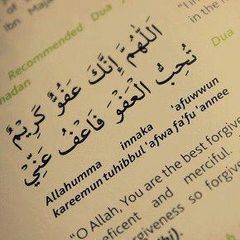 Ibn Maj
Recommended Dua
madan
in the
Dua
اَللّٰهُمَّ إِنَّكَ عَفُوٌّ كَرِيْمٌ
تُحِبُّ الْعَفْوَ فَاعْفُ عَنِّيْ
Allahumma innaka 'afuwwun
kareemun tuhibbul 'afwa fa'fu 'annee
"O Allah, You are the best forgive
eficent and merciful.
forgiveness so forgiv